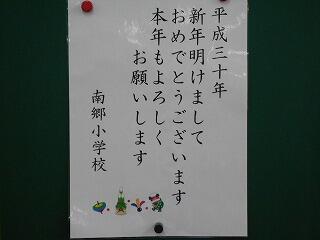 平成三十年
新年明けまして
おめでとうございます
本年もよろしく
お願いします
南郷小学校